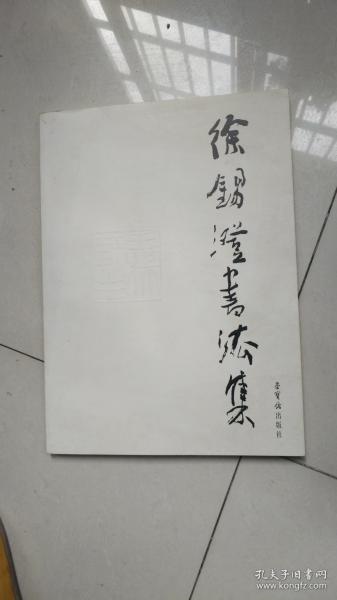 徐锡澄书法集
荣宝斋出版社
孔夫子旧书网
www.kongfz.com